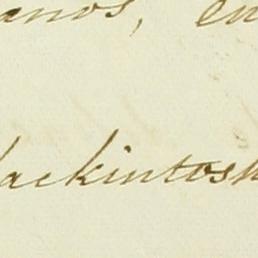 anos, en
ackintosh